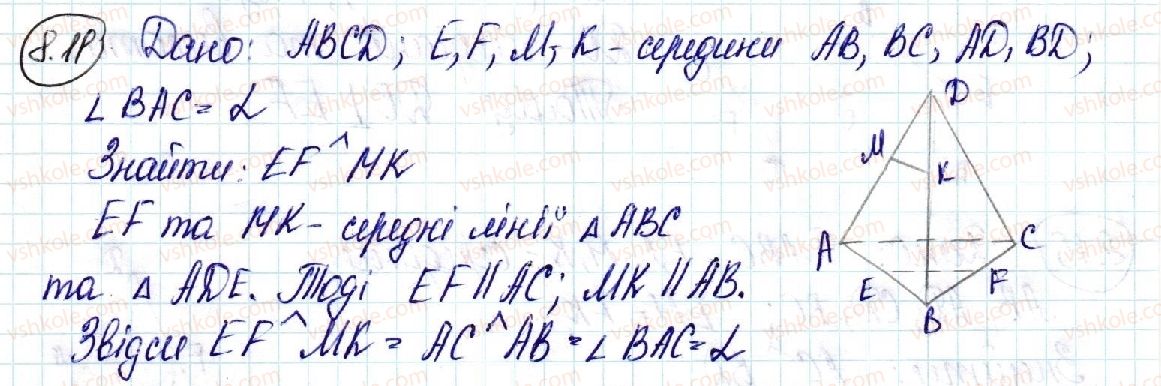 8.18) Дано: ABCD; E, F, M, K - середини AB, BC, AD, BD;
∠ BAC = α
Знайти: EF ^ MK
EF та MK - середні лінії △ ABC
та △ ADE. Тоді EF || AC; MK || AB.
Звідси EF ^ MK = AC ^ AB = ∠ BAC = α
D
M
K
A
C
E
F
B
vshkole.com